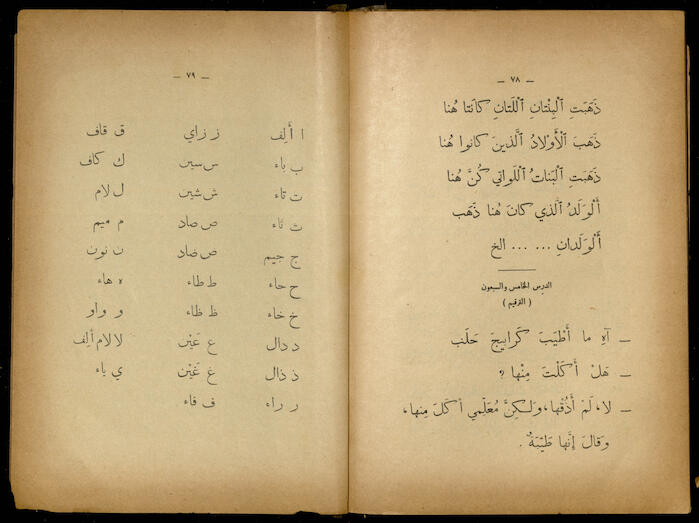 — ٧٨ —
ذَهَبَتِ ٱلْبِنْتانِ ٱللَّتانِ كانَتا هُنا
ذَهَبَ ٱلْأَوْلادُ ٱلَّذينَ كانوا هُنا
ذَهَبَتِ ٱلْبَناتُ ٱللَّواتي كُنَّ هُنا
أَلْوَلَدُ ٱلَّذي كانَ هُنا ذَهَب
أَلْوَلَدانِ ... ... الخ
الدرس الخامس والسبعون
( الترقيم )
— آهِ ما أَطْيَبَ كَرابيجَ حَلَب
— هَلْ أَكَلْتَ مِنْها ؟
— لا، لَمْ أَذُقْها، وَلـكِنَّ مُعَلِّمي أكَلَ مِنها،
وَقالَ إِنَّها طَيِّبَةٌ .
— ٧٩ —
ا أَلِف ز زاي ق قاف
ب باء س سين ك كاف
ت تاء ش شين ل لام
ث ثاء ص صاد م ميم
ج جيم ض ضاد ن نون
ح حاء ط طاء ه هاء
خ خاء ظ ظاء و واو
د دال ع عَيْن لا لام ألِف
ذ ذال غ غَيْن ي ياء
ر راء ف فاء